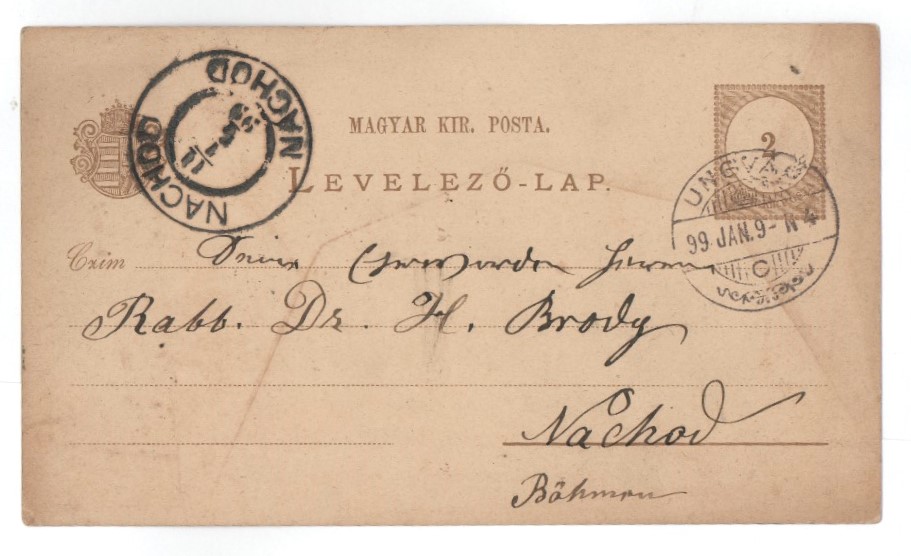 MAGYAR KIR. POSTA.
LEVELEZŐ-LAP.
2
NACHOD
NACHOD
11 1 99
UNGVÁR
99 JAN. 9 - N 4
C
Czim Seiner Ehrwürden Herrn
Rabb. Dr. H. Brody
Nachod
Böhmen